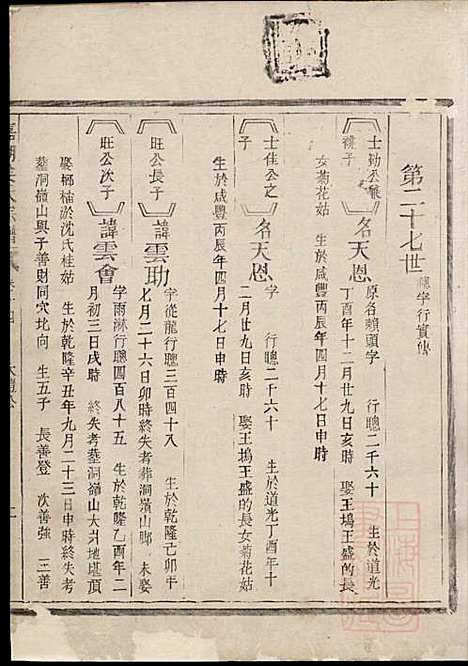 第二十七世 聰字行實傳
士勤公繼
桃子
名天恩
原名賴頭字 行聰二千六十 生於道光
丁酉年十二月廿九日亥時 娶王塢王盛的長
女菊花姑 生於咸豐丙辰年四月十七日申時
士佳公之
子
名天恩
字 行聰二千六十 生於道光丁酉年十
二月廿九日亥時 娶王塢王盛的長女菊花姑
生於咸豐丙辰年四月十七日申時
旺公長子
諱雲助
字從龍行聰三百四十八 生於乾隆己卯年
七月二十六日卯時終失考葬洞嶺山脚 未娶
旺公次子
諱雲會
字雨淋行聰四百八十五 生於乾隆乙酉年二
月初三日戌時 終失考墓洞嶺山大爿地堪頂
娶櫛檣於沈氏桂姑 生於乾隆辛丑年九月二十三日申時終失考
墓洞嶺山與子善財同穴北向 生五子 長善登 次善強 三善